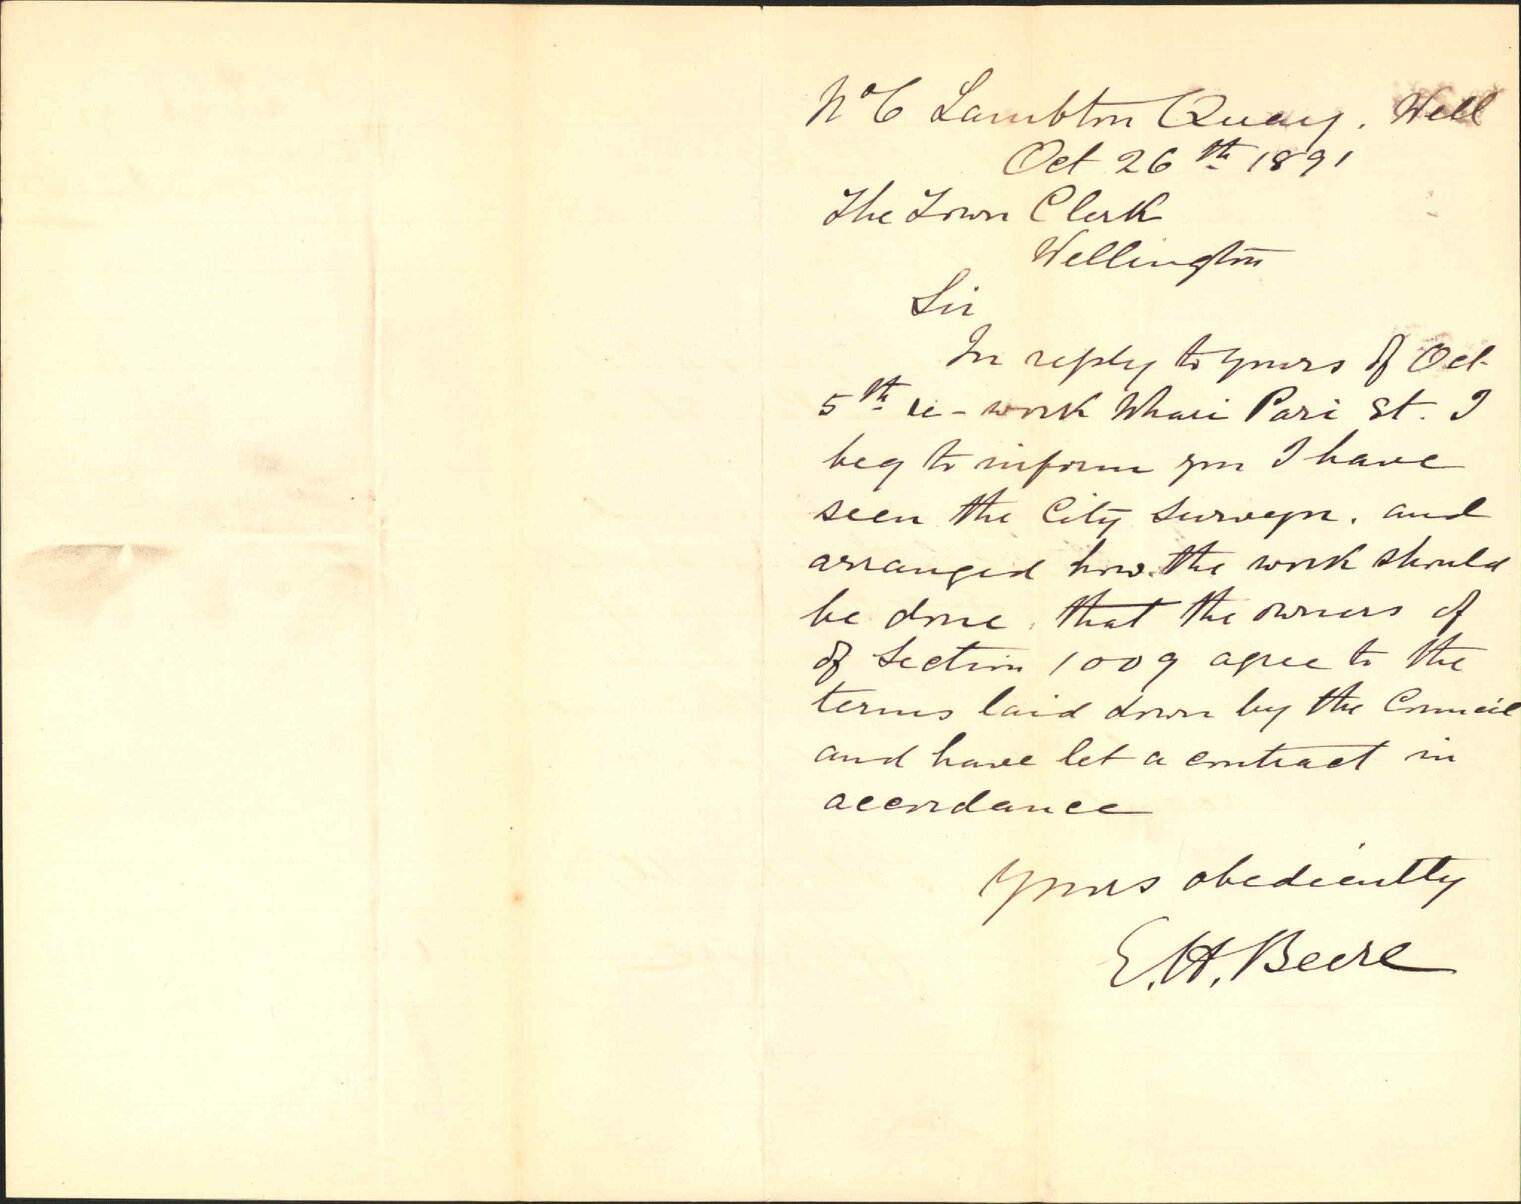 No 6 Lambton Quay. Well
Oct 26th 1891
The Town Clerk
Wellington
Sir
In reply to yours of Oct
5th re - work Whari Pari St. I
beg to inform you I have
seen the City Surveyor. and
arranged how the work should
be done. that the owners of
of Section 1009 agree to the
terms laid down by the Council
and have let a contract in
accordance
Yours obediently
E. H. Beere